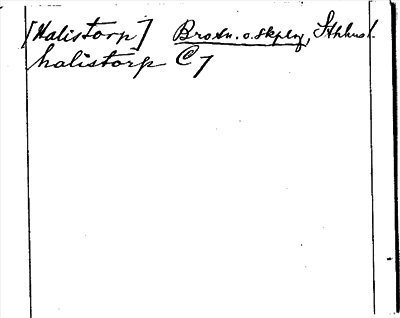 [Halistorp] Broxn. o. Skplg, Sthlms l.
halistorp C 7